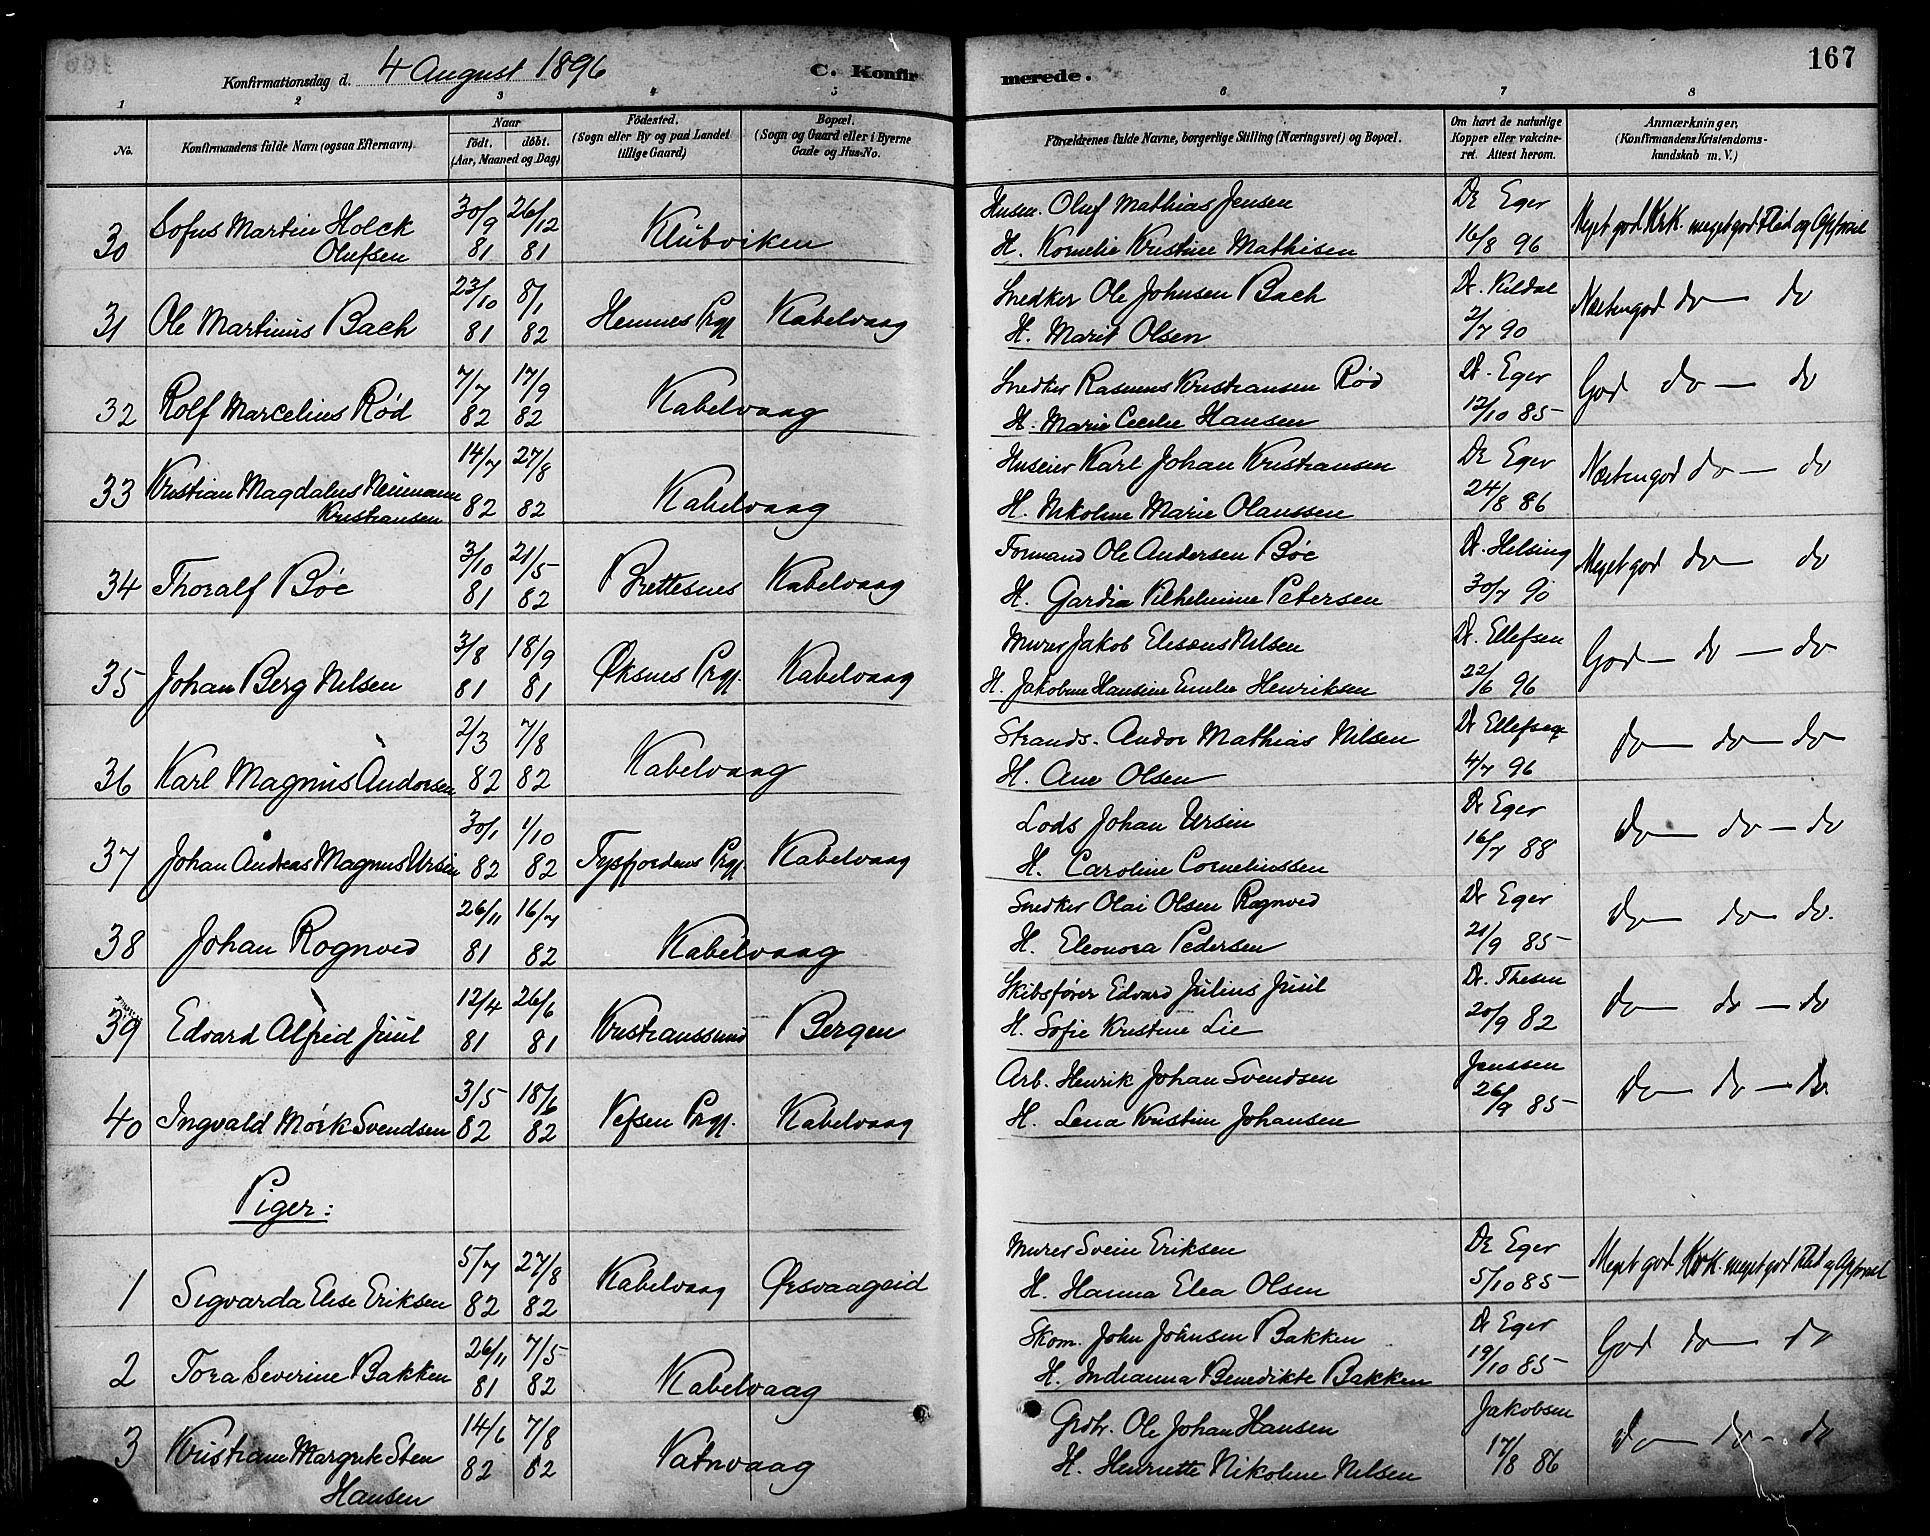 167
Konfirmationsdag d. 4 August 1896
C. Konfirmerede.
1 2 3 4 5 6 7 8
No.
Konfirmandens fulde Navn (ogsaa Efternavn).
Naar
født. døbt.
(Aar, Maaned og Dag)
Fødested.
(Sogn eller By og paa Landet
tillige Gaard)
Bopæl.
(Sogn og Gaard eller i Byerne
Gade og Hus-No.
Forældrenes fulde Navne, borgerlige Stilling (Næringsvei) og Bopæl.
Om havt de naturlige
Kopper eller vakcine-
ret. Attest herom.
Anmærkninger,
(Konfirmandens Kristendoms-
kundskab m. V.)
30 Sofus Martin Holck Olufsen 30/9 81 26/12 81 Klubviken
Husm. Oluf Mathias Jensen
H. Kornelie Kristine Mathisen
Dr Eger 16/8 96
Meget god Krk. meget god Flid og Opførsel
31 Ole Martinus Bach 23/10 81 8/1 82 Hemnes Prgj. Kabelvaag
Snedker Ole Johnsen Bach
H. Marit Olsen
Dr. Kildal 2/7 90
Næsten god do — do
32 Rolf Marcelius Rød 7/7 82 17/9 82 Kabelvaag
Snedker Rasmus Kristiansen Rød
H. Marie Cecilie Hansen
Dr. Eger 12/10 85
God do — do
33 Kristian Magdalus Neumann Kristiansen 14/7 82 27/8 82 Kabelvaag
Huseier Karl Johan Kristiansen
H. Nikoline Marie Olaussen
Dr Eger 24/8 86
Næsten god do — do
34 Thoralf Bøe 3/10 81 21/5 82 Brettesnes Kabelvaag
Formand Ole Andersen Bøe
H. Gardia Vilhelmine Petersen
Dr. Helsing 30/7 90
Meget god do — do
35 Johan Berg Nilsen 3/8 81 18/9 81 Øksnes Prgj. Kabelvaag
Murer Jakob Eliseus Nilsen
H. Jakobine Hansine Emilie Henriksen
Dr. Ellefsen 22/6 96
God — do — do
36 Karl Magnus Andorsen 2/3 82 7/8 82 Kabelvaag
Strands. Andor Mathias Nilsen
H. Ane Olsen
Dr Ellefsen 4/7 96
do — do — do
37 Johan Andreas Magnus Ursin 30/1 82 1/10 82 Tysfjordens Prgj. Kabelvaag
Lods Johan Ursin
H. Caroline Corneliussen
Dr Eger 16/7 88
do — do — do
38 Johan Rognved 26/11 81 16/7 82 Kabelvaag
Snedker Olai Olsen Rognved
H. Eleonora Pedersen
Dr Eger 21/9 85
do — do — do.
39 Edvard Alfred Juul 12/4 81 26/6 81 Kristianssund Bergen
Skibsfører Edvard Julius Juul
H. Sofie Kristine Lie
Dr. Thesen 20/9 82
do — do — do
40 Ingvald Mørk Svendsen 3/5 82 18/6 82 Vefsen Prgj. Kabelvaag
Arb. Henrik Johan Svendsen
H. Lena Kristine Johansen
Janssen 26/9 85
do — do — do.
Piger:
1 Sigvarda Elise Eriksen 5/7 82 27/8 82 Kabelvaag Ørsvaageid
Murer Svein Eriksen
H. Hanna Elea Olsen
Dr Eger 5/10 85
Meget god Krk. meget god Flid og Opførsel
2 Tora Severine Bakken 26/11 81 7/5 82 Kabelvaag
Skom. John Johnsen Bakken
H. Indianna Benedikte Bakken
Dr Eger 19/10 85
God do — do
3 Kristiane Margrete Sten Hansen 14/6 82 7/8 82 Vatnvaag
Grdbr. Ole Johan Hansen
H. Henriette Nikoline Nilsen
Jakobsen 17/8 86
do — do — do